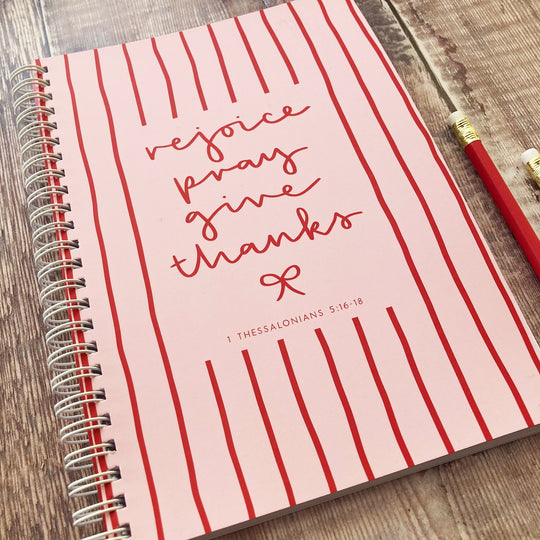 rejoice
pray
give
thanks
1 THESSALONIANS 5:16-18